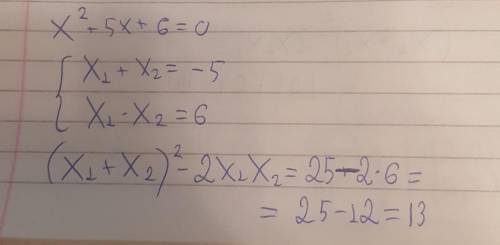 x² + 5x + 6 = 0
x₁ + x₂ = -5
x₁ - x₂ = 6
(x₁ + x₂)² - 2x₁x₂ = 25 - 2·6 =
= 25 - 12 = 13